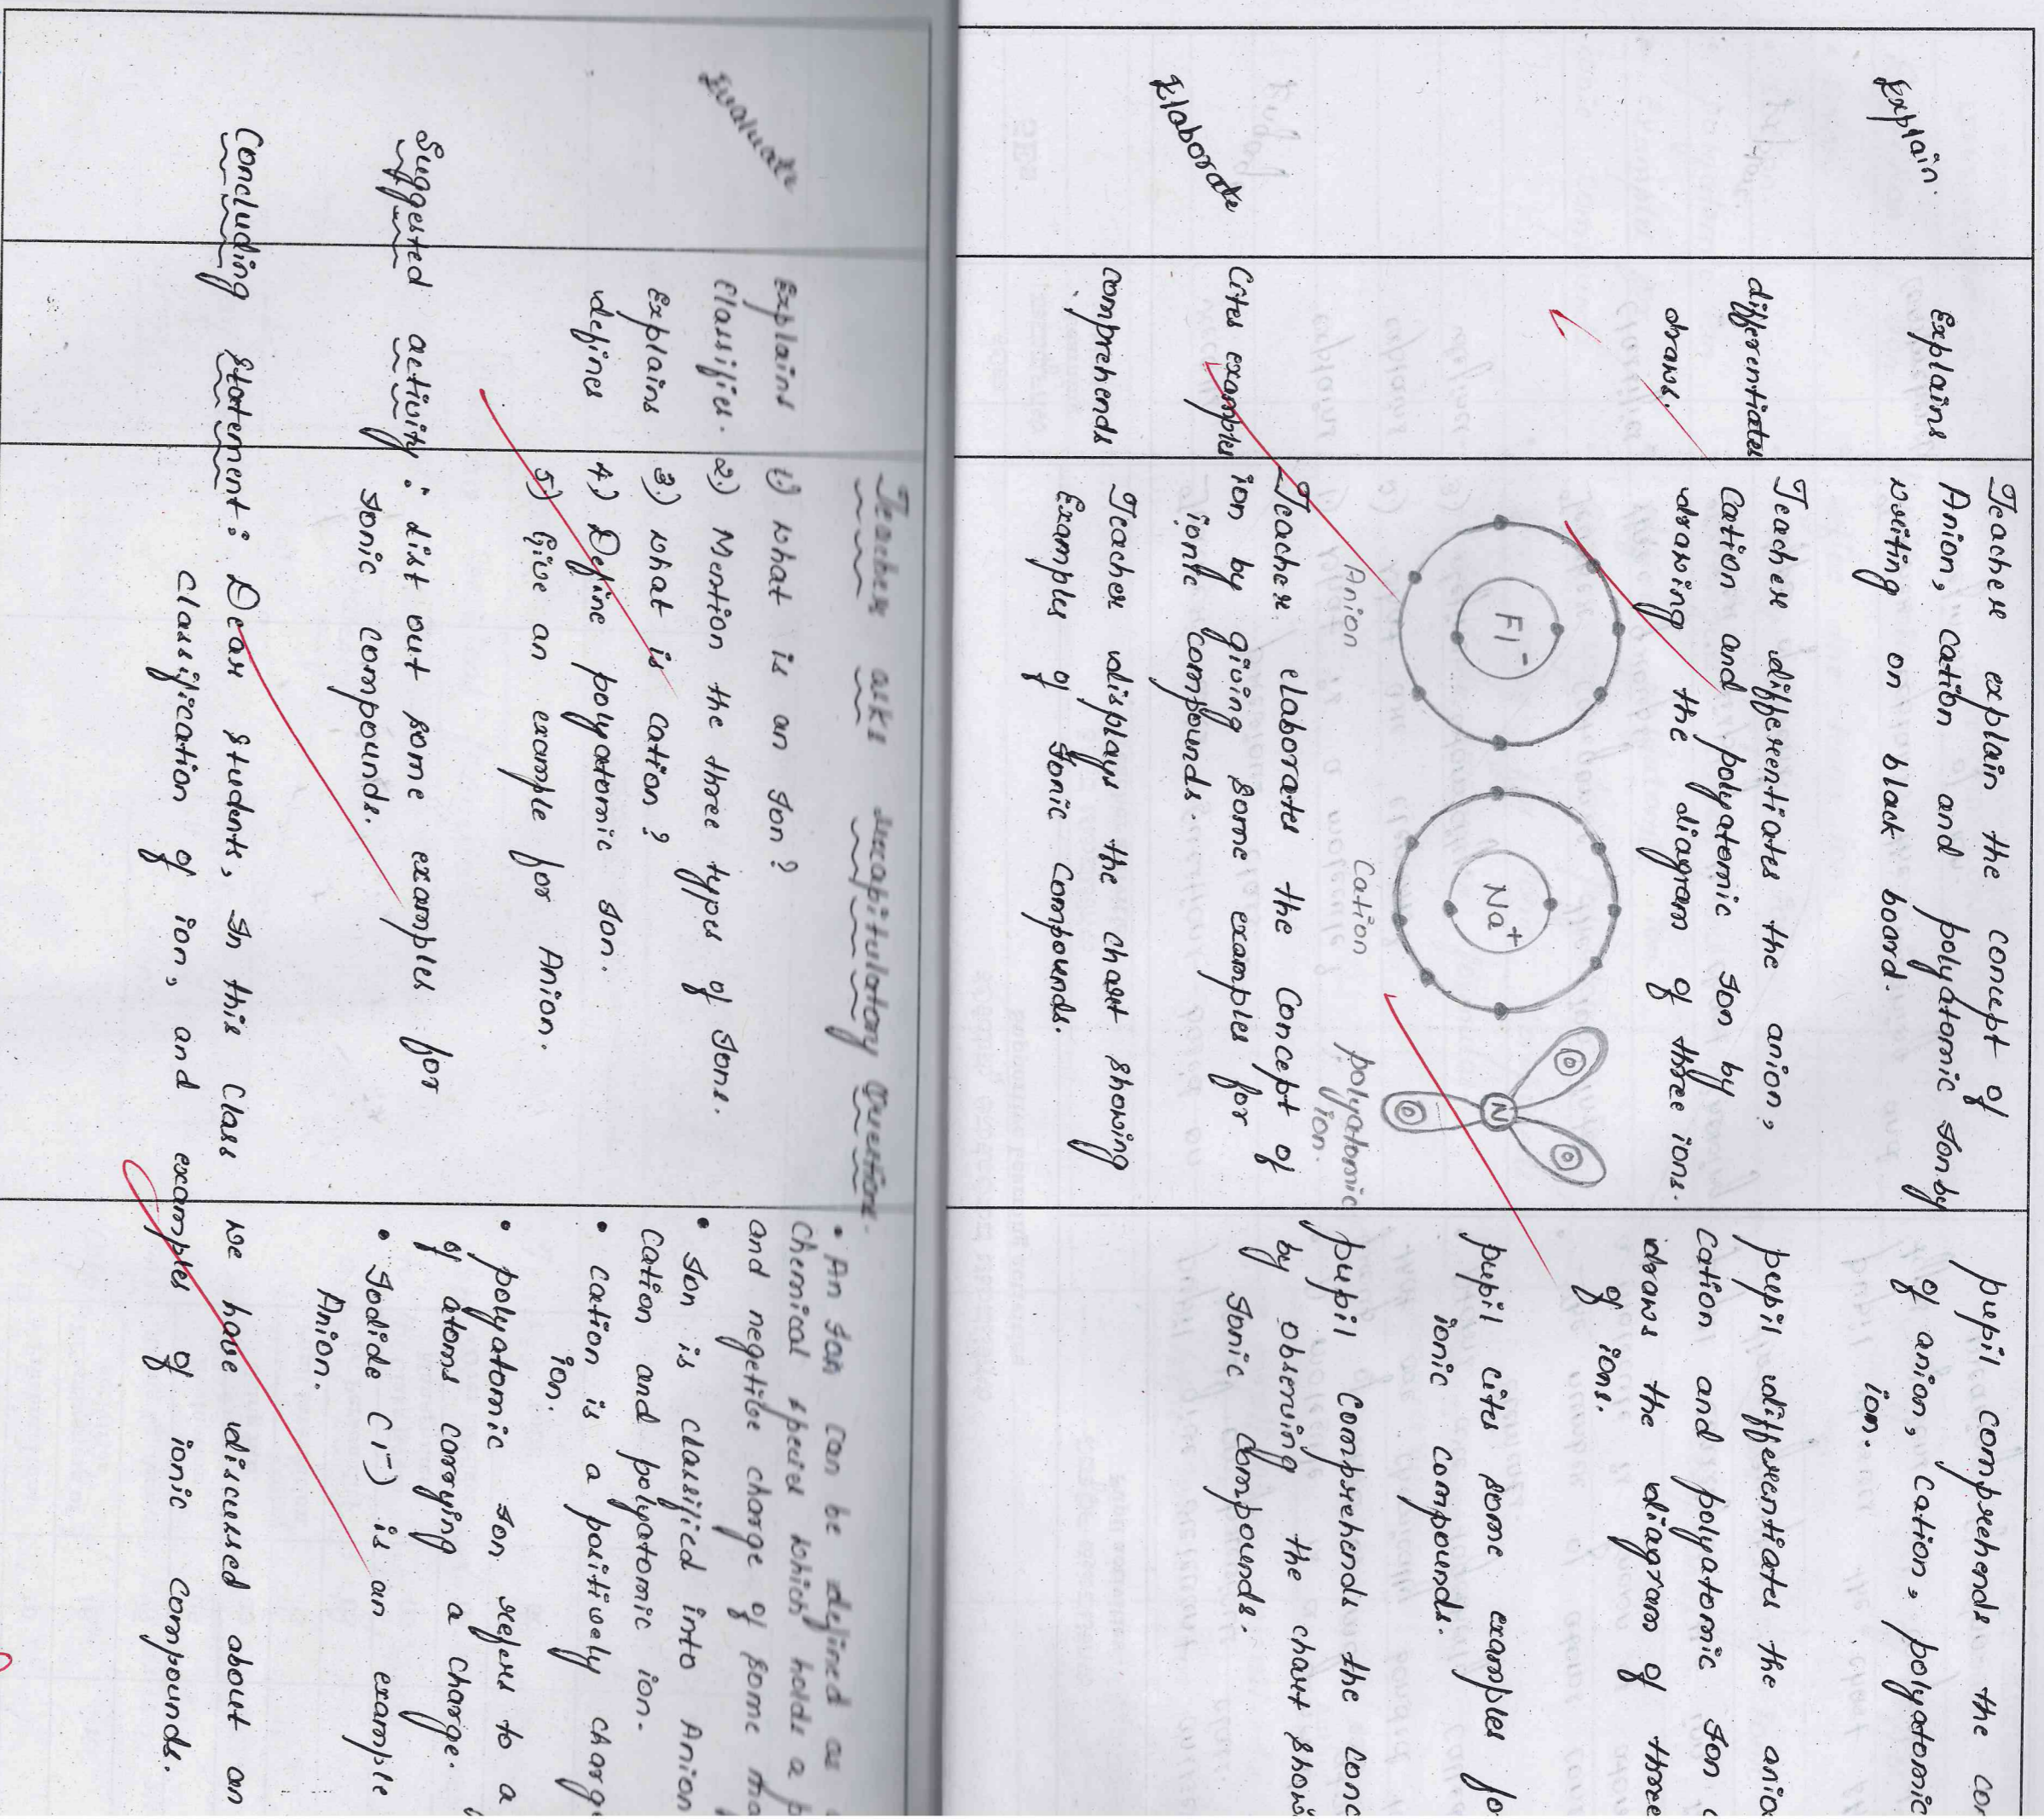 Explain.
Explains
Teacher explain the concept of
Anion, Cation and polyatomic Ion by
writing on black board.
pupil comprehends the
of anion, cation, polyatomic
ion.
differentiates
draws.
Teacher differentiates the anion,
Cation and polyatomic Ion by
drawing the diagram of three ions.
pupil differentiates the
Cation and polyatomic Ion
draws the diagram of three
of ions.
Fl⁻
Na⁺
N
O
O
O
Anion
Cation
polyatomic
ion.
Elaborate
Cites examples
Teacher elaborates the Concept of
ion by giving some examples for
ionic compounds.
pupil cites some examples
ionic compounds.
Comprehends
Teacher displays the chart showing
Examples of Ionic Compounds.
pupil Comprehends the
by observing the chart
of Ionic Compounds.
Evaluate
Teacher asks recapitulatory Questions.
Explains
1.) what is an Ion?
Classifies.
2.) Mention the three types of Ions.
Explains
3.) what is cation?
defines
4.) Define polyatomic Ion.
5.) Give an example for Anion.
• An Ion can be defined as
Chemical species which holds a
and negetibe charge of some
• Ion is classified into Anion
Cation and polyatomic ion.
• Cation is a positively
ion.
• polyatomic Ion refers to a
of atoms carrying a charge.
• Iodide (I⁻) is an example
Anion.
Suggested activity : List out some examples for
Ionic Compounds.
Concluding Statement : Dear students, In this Class we have discussed about an
Classification of ion, and examples of ionic compounds.